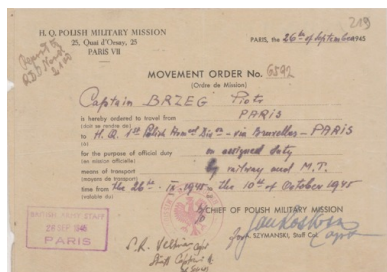 219
H. Q. POLISH MILITARY MISSION
25, Quai d'Orsay, 25
PARIS VII
PARIS, the 26th of September 1945
MOVEMENT ORDER No. 6592
(Ordre de Mission)
Captain BRZEG Piotr
is hereby ordered to travel from PARIS
(doit se rendre de)
to H.Q. 1st Polish Armd Div – via Bruxelles – PARIS
(à)
for the purpose of official duty on assigned duty
(en mission officielle)
means of transport by railway and M.T.
(moyens de transport)
time from the 26th IX-1945 to the 10th of October 1945
(valable du)
CHIEF OF POLISH MILITARY MISSION
BRITISH ARMY STAFF
26 SEP 1945
PARIS
SZYMANSKI, Staff Col.
Capt
Staff Captain